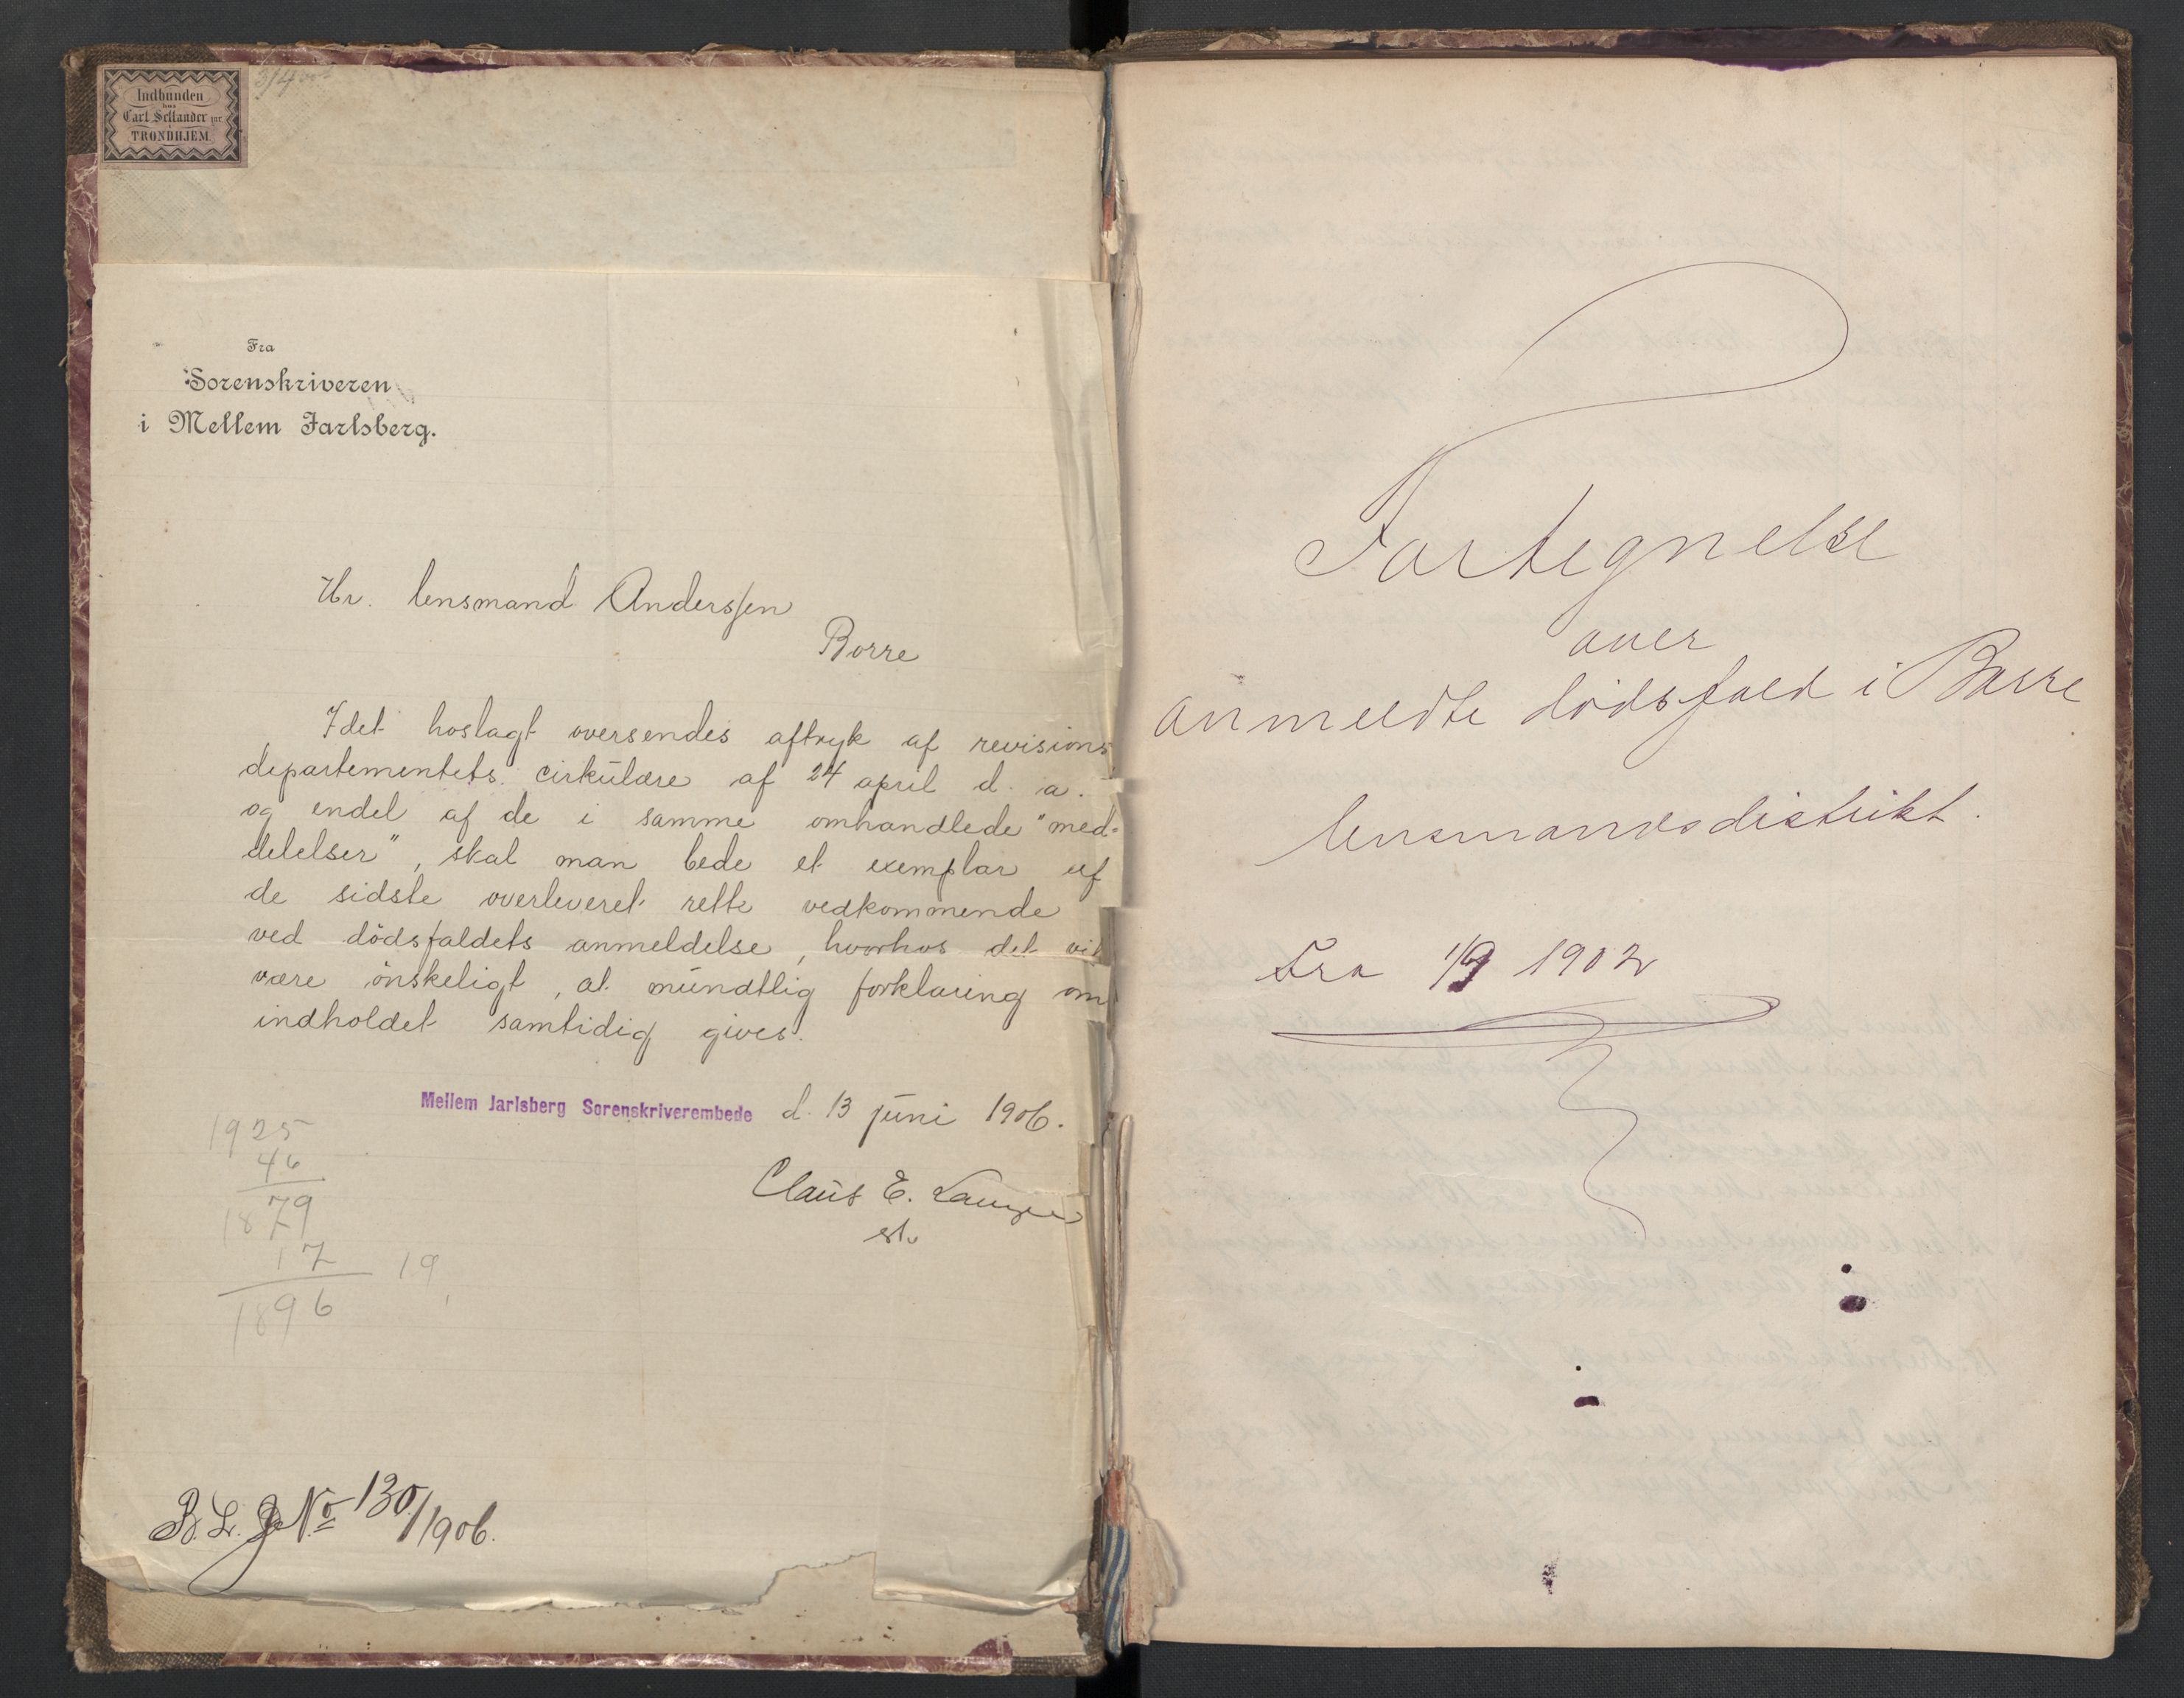 Indbunden
hos
Carl Sellander jnr.
i
TRONDHJEM
Fra
Sorenskriveren
i Mellem Jarlsberg.
Hr. lensmand Anderssen
Borre
Idet hoslagt oversendes aftryk af revisions
departementets cirkulære af 24 april d. a.
og endel af de i samme omhandlede "med-
delelser", skal man bede et exemplar af
de sidste overleveret rette vedkommende
ved dödsfaldets anmeldelse, hvorhos det vil
være önskeligt, at mündtlig forklaring om
indholdet samtidig gives.
Mellem Jarlsberg Sorenskriverembede d. 13 juni 1906.
Claus E.
st.
1925
46
1879
17 19
1896
B. L. J. No 130/1906.
Fortegnelse
over
anmeldte dödsfald i Borre
lensmandsdistrikt.
Fra 1/9 1902